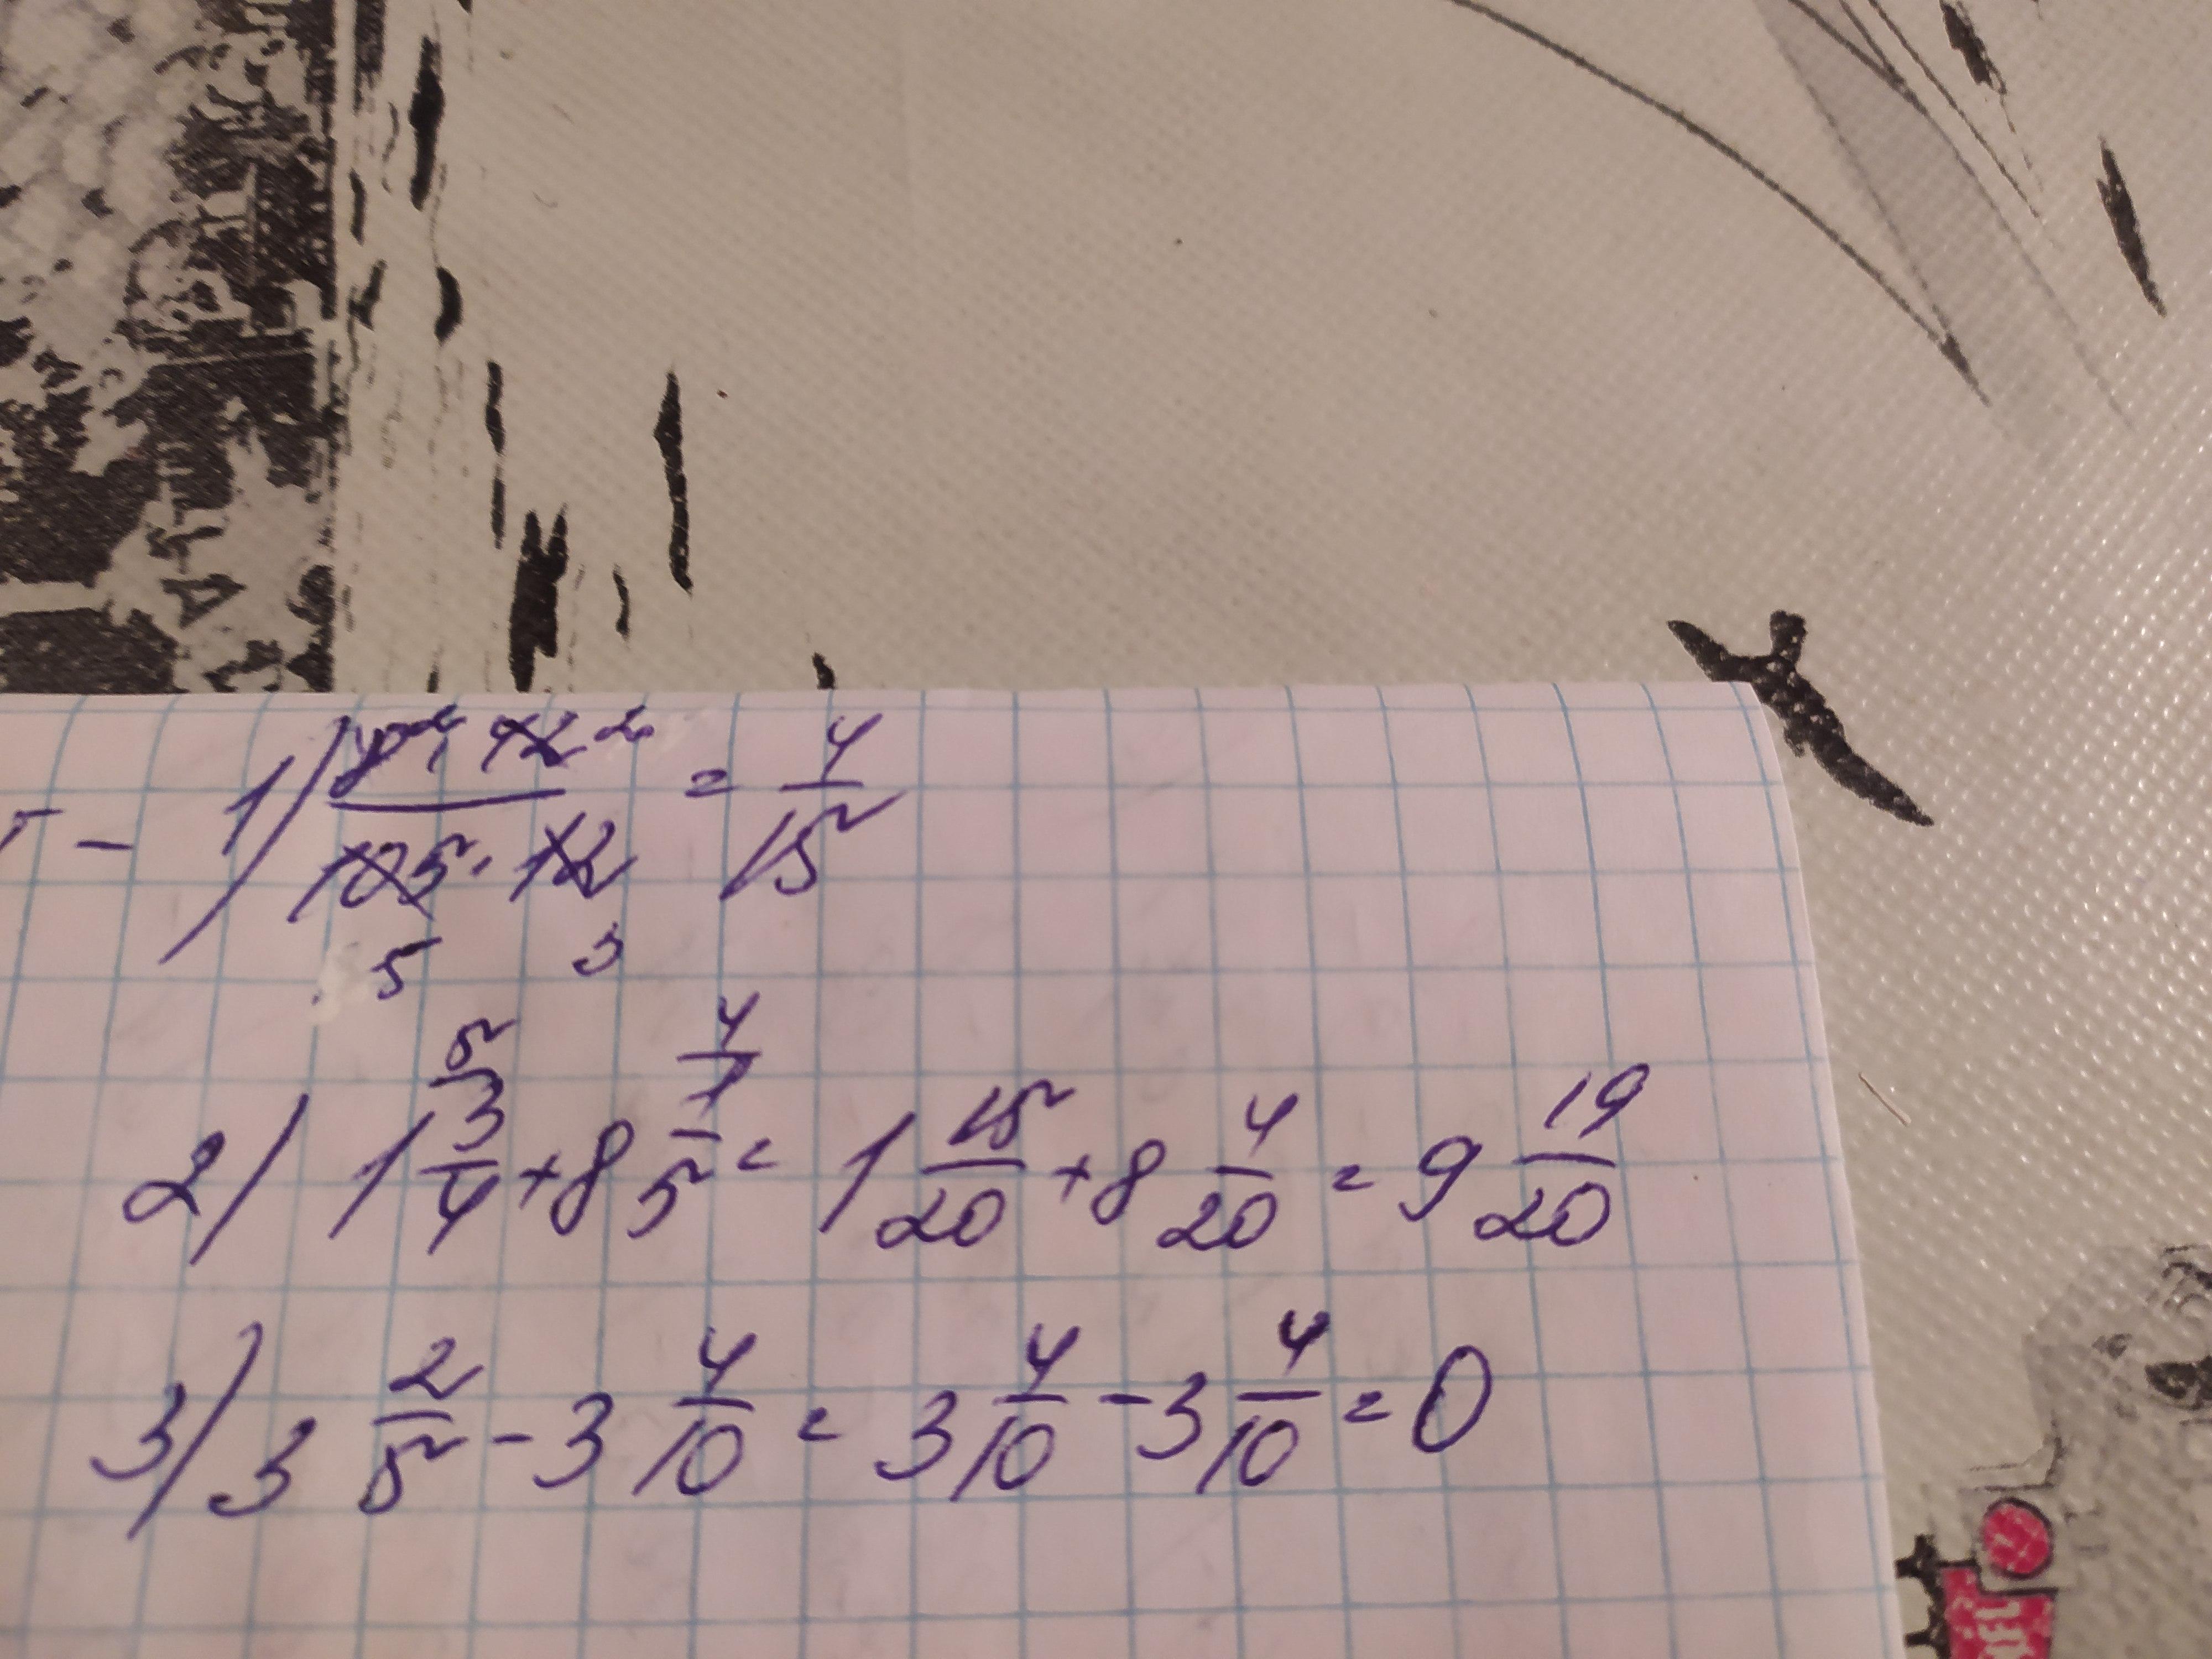 1) = 4/15
5 3
2) 1 3/4 + 8 1/5 = 1 15/20 + 8 4/20 = 9 19/20
3) 3 2/5 - 3 4/10 = 3 4/10 - 3 4/10 = 0